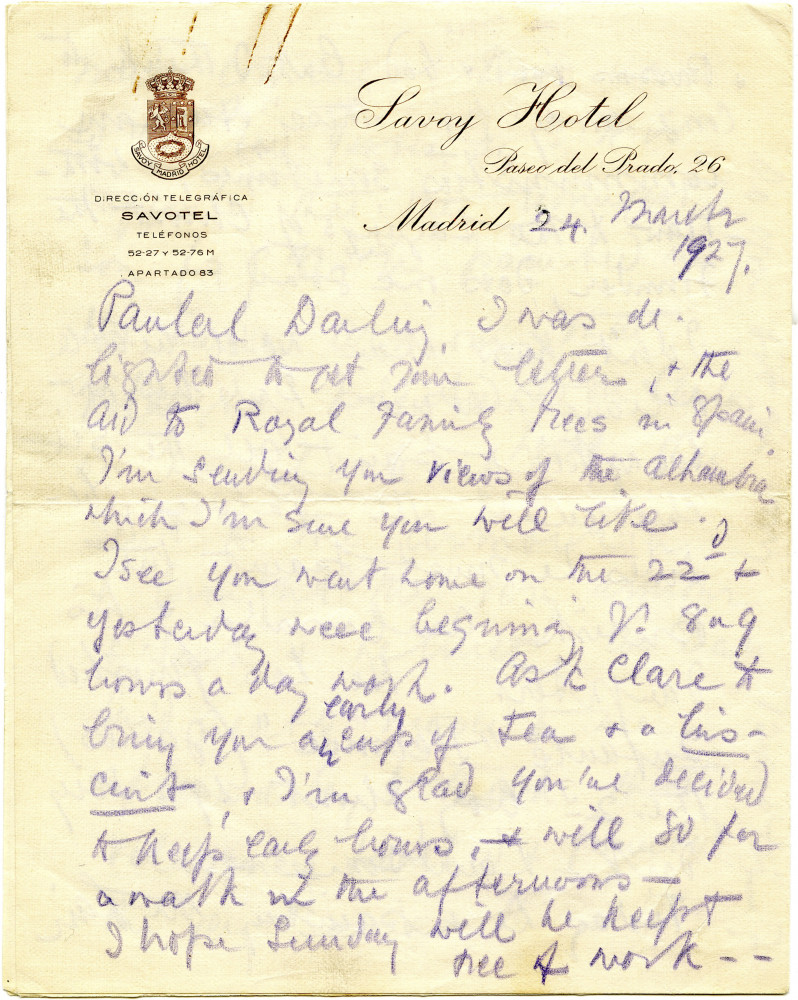 SAVOY MADRID HOTEL
DIRECCIÓN TELEGRÁFICA
SAVOTEL
TELÉFONOS
52-27 Y 52-76 M
APARTADO 83
Savoy Hotel
Paseo del Prado, 26
Madrid 24. March
1927.
Darling I was de-
lighted to get your letter, & the
aid to Royal Family trees in Spain.
I'm sending you views of the Alhambra
which I'm sure you will like.
I see you went home on the 22d &
yesterday were beginning 8 or 9
hours a day work. Ask Clare to
early
bring you a cup of tea & a bis-
cuit, & I'm glad you've decided
to keep early hours, & will go for
a walk in the afternoons —
I hope Sunday will be kept
free of work - -